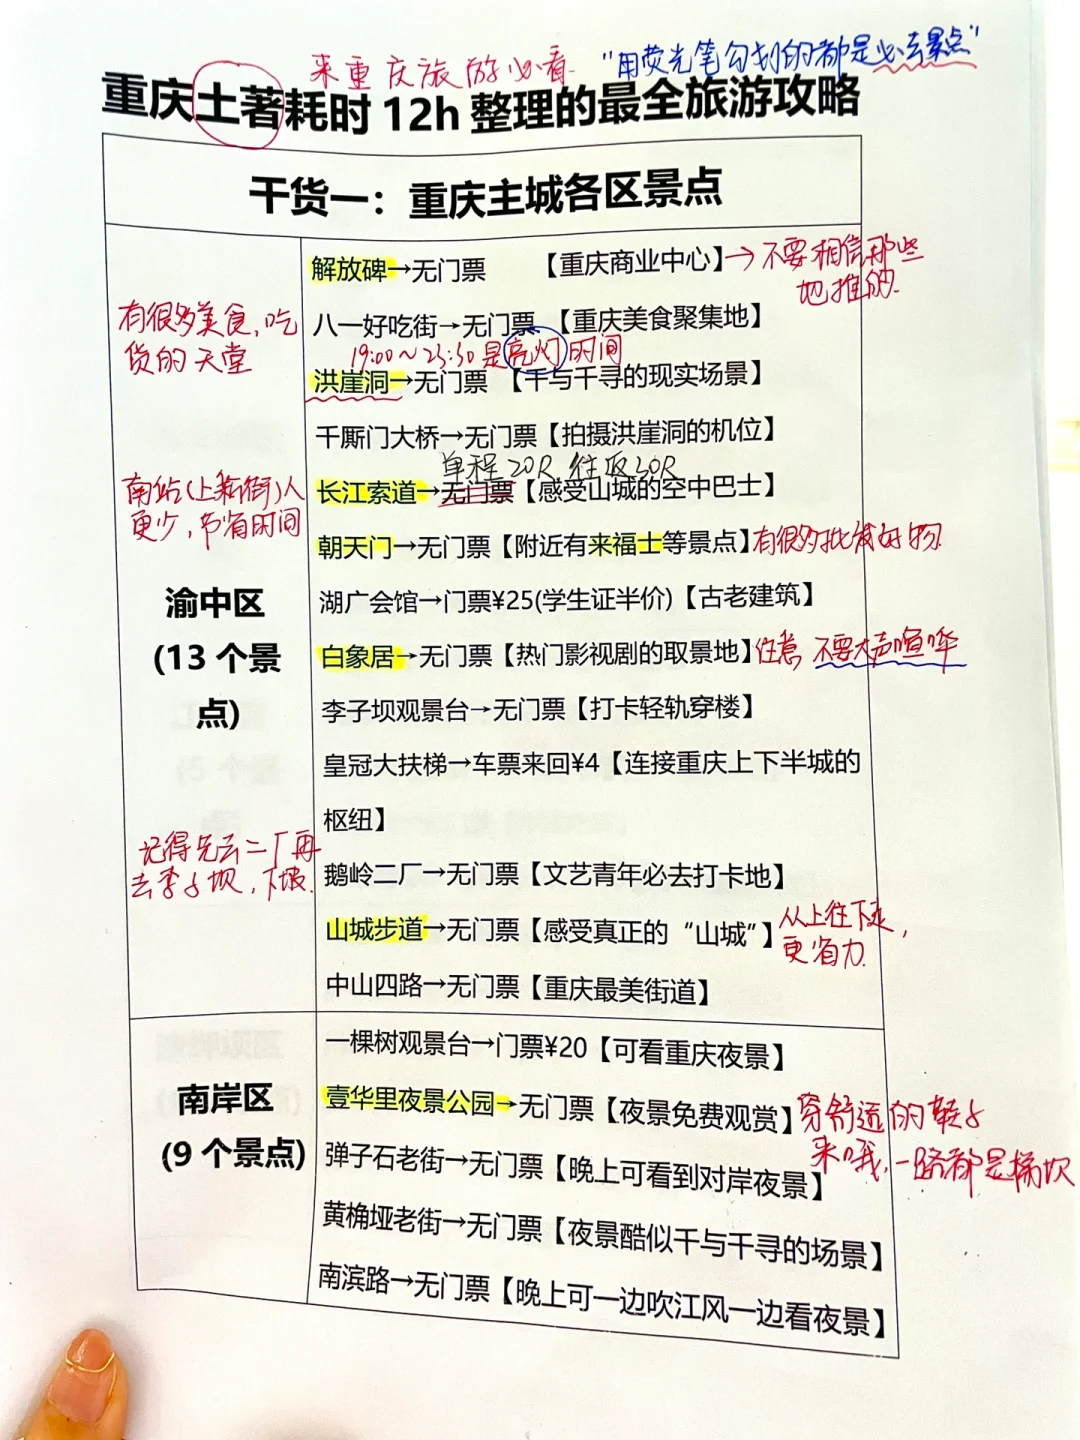 来重庆旅游必看 "用荧光笔勾划的都是必去景点"
重庆土著耗时12h整理的最全旅游攻略
干货一：重庆主城各区景点
解放碑→无门票 【重庆商业中心】→不要相信那些
地推的.
有很多美食,吃
货的天堂
八一好吃街→无门票 【重庆美食聚集地】
19:00～23:30是亮灯时间
洪崖洞→无门票 【千与千寻的现实场景】
千厮门大桥→无门票【拍摄洪崖洞的机位】
单程20R 往返30R
南站(上新街)人
更少,节省时间
长江索道→无门票【感受山城的空中巴士】
朝天门→无门票【附近有来福士等景点】有很多批发好物
湖广会馆→门票¥25(学生证半价)【古老建筑】
渝中区
(13个景
点)
白象居→无门票【热门影视剧的取景地】注意 不要大声喧哗
李子坝观景台→无门票【打卡轻轨穿楼】
皇冠大扶梯→车票来回¥4【连接重庆上下半城的
枢纽】
记得先去二厂再
去李子坝,下坡.
鹅岭二厂→无门票【文艺青年必去打卡地】
山城步道→无门票【感受真正的“山城”】从上往下走,
更省力.
中山四路→无门票【重庆最美街道】
南岸区
(9个景点)
一棵树观景台→门票¥20【可看重庆夜景】
壹华里夜景公园→无门票【夜景免费观赏】穿舒适的鞋子
来哦,一路都是梯坎
弹子石老街→无门票【晚上可看到对岸夜景】
黄桷垭老街→无门票【夜景酷似千与千寻的场景】
南滨路→无门票【晚上可一边吹江风一边看夜景】